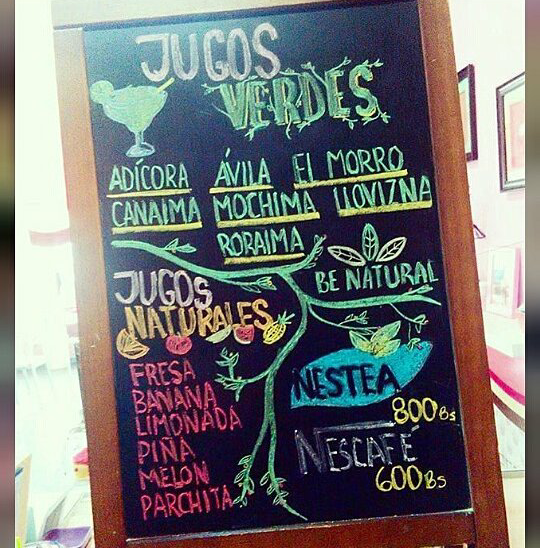 JUGOS
VERDES
ADÍCORA ÁVILA El MORRO
CANAIMA MOCHIMA llOVIZNA
RORAIMA
BE NATURAL
JUGOS
NATURALES
FRESA
BANANA
LIMONADA
PIÑA
MELON
PARCHITA
NESTEA
800Bs
NESCAFÉ
600Bs